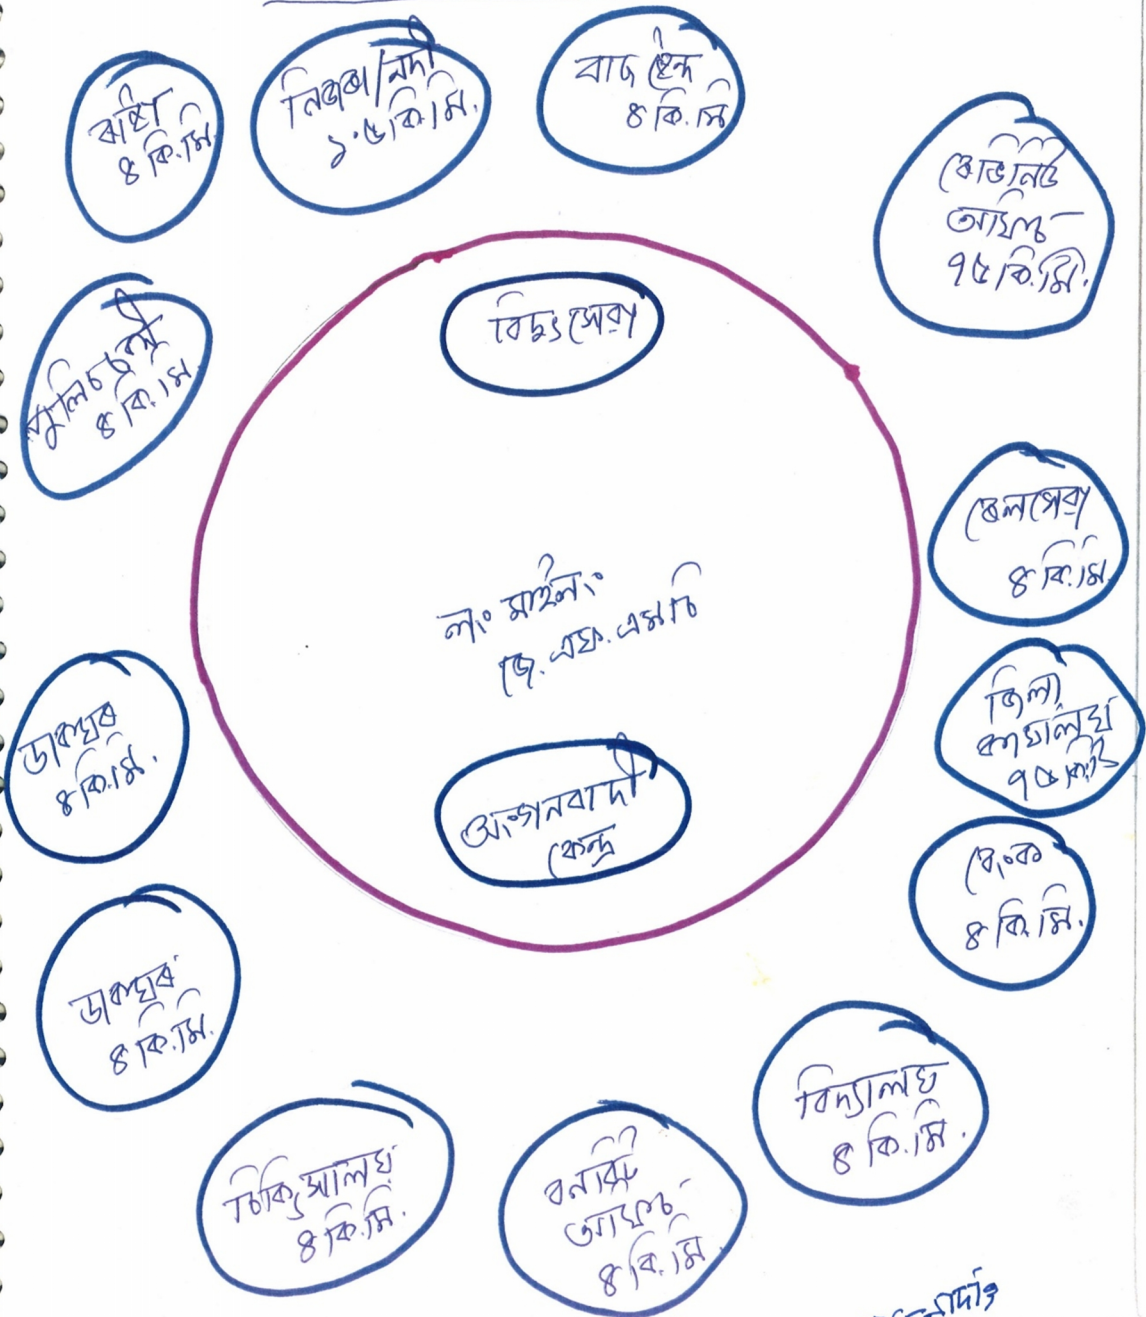 ৰাস্তা
৪ কি.মি.
নিজৰা/নদী
১.৫ কি.মি.
বাচ ষ্টেন্দ
৪ কি.মি
ৰেভিনিউ
অফিচ
৭৫ কি.মি.
বিদ্যুৎ সেৱা
৪ কি.মি.
ৰেলসেৱা
৪ কি.মি
লং মাইলং
জে.এফ.এম চি
জিলা
কাৰ্যালয়
৭৫ কি.মি
ডাকঘৰ
৪ কি.মি.
অংগনবাদী
কেন্দ্ৰ
বেংক
৪ কি.মি.
ডাকঘৰ
৪ কি.মি.
বিদ্যালয়
৪ কি.মি.
চিকিৎসালয়
৪ কি.মি.
বনবিট
অফিচ
৪ কি.মি.